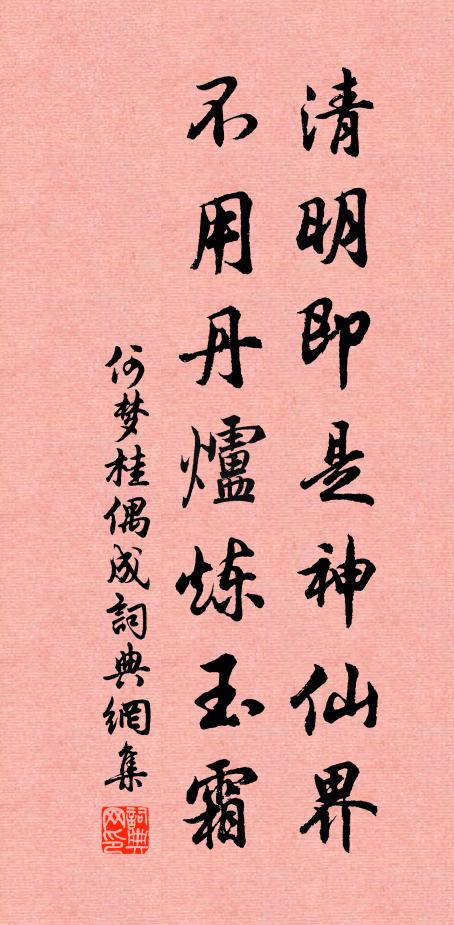 清明即是神仙界
不用丹爐炼玉霜
何梦桂偶成詞典網集
詞典网印